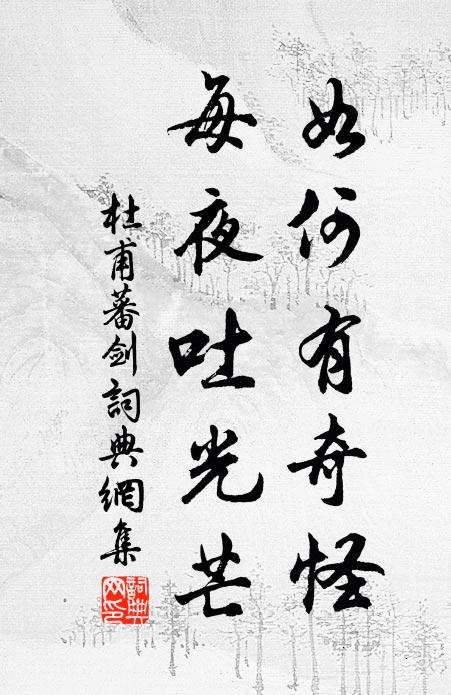 如何有奇怪
每夜吐光芒
杜甫蕃劍詞典網集
詞典網印